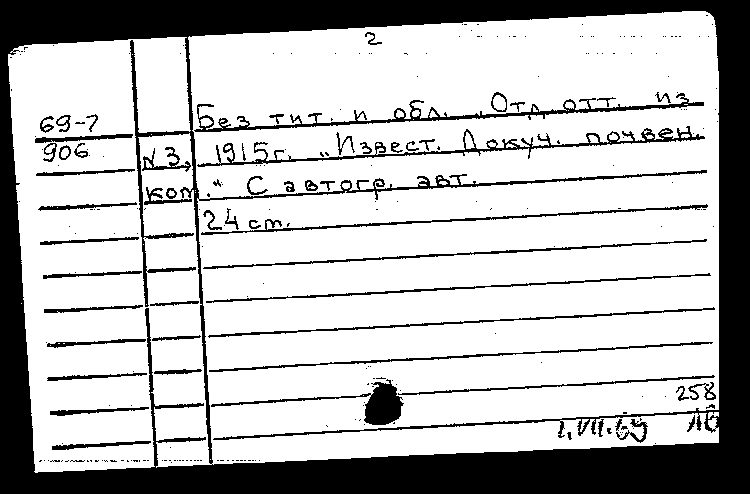 2
69-7 Без тит. и обл. „Отд. отт. из
906 N 3, 1915г. „Извест. Докуч. почвен.
ком.“ С автогр. авт.
24 cm.
258
1.VII.69 ЛВ